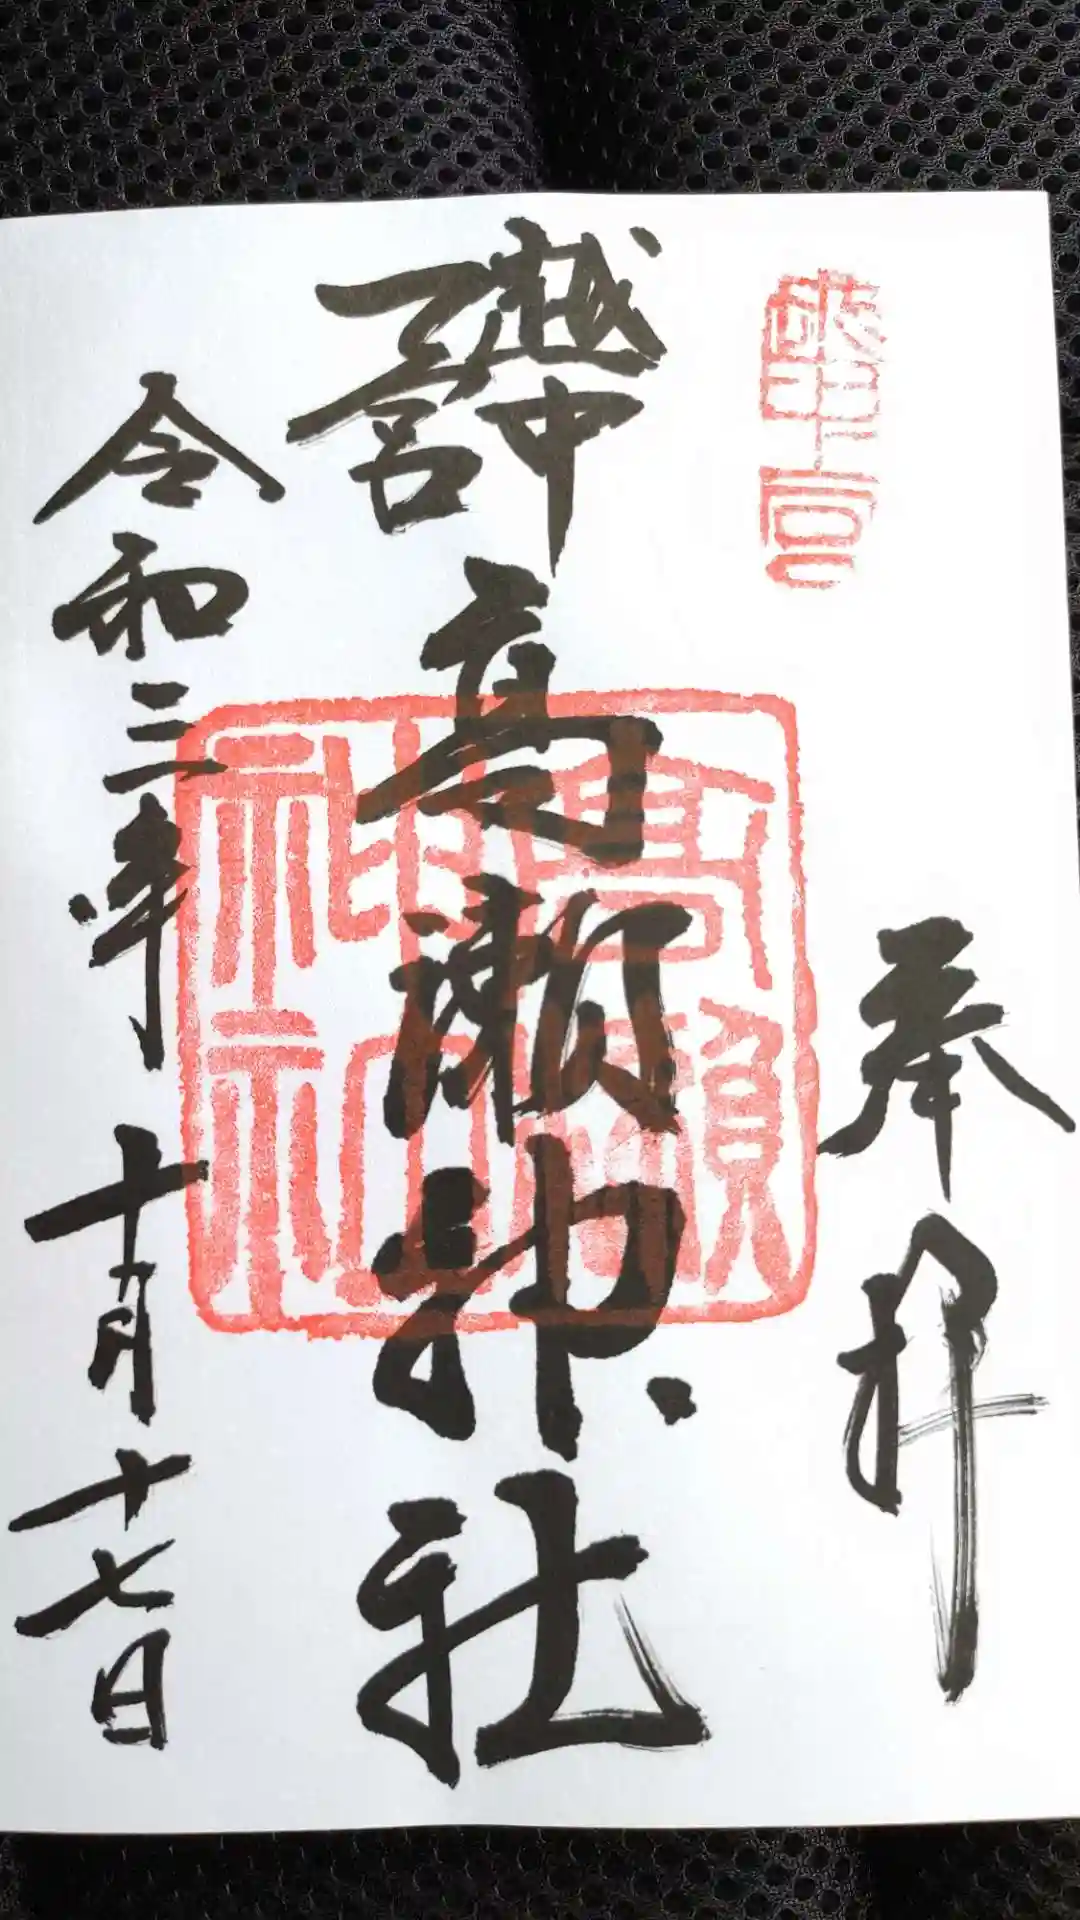 越中一宮
奉拝
越中
一宮
高瀬神社
高瀬神社
令和三年十月十七日